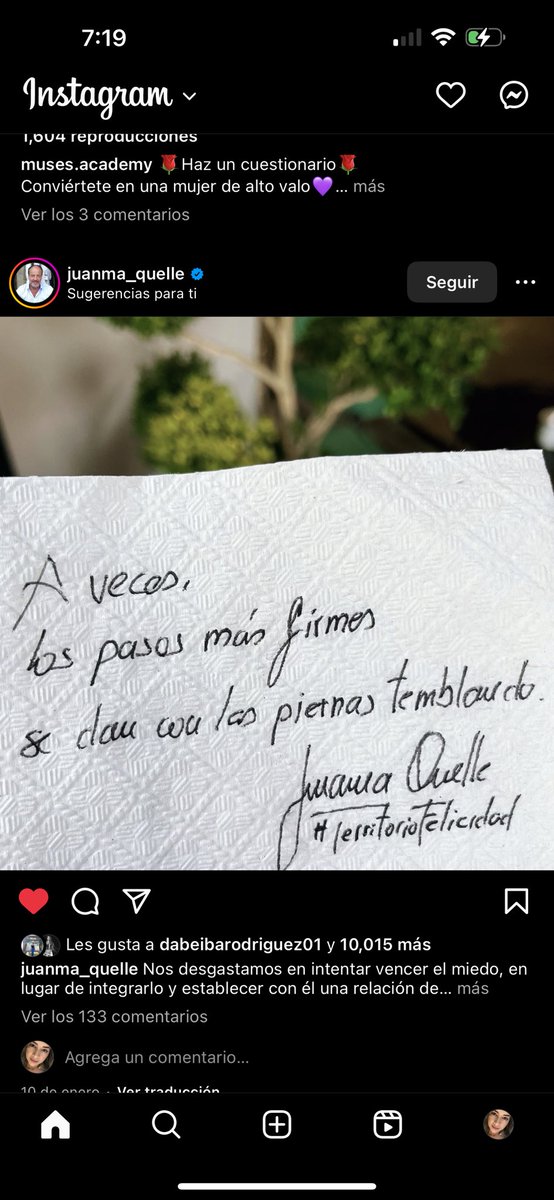 7:19
Instagram
1,604 reproducciones
muses.academy 🌹Haz un cuestionario🌹
Conviértete en una mujer de alto valo💜... más
Ver los 3 comentarios
juanma_quelle
Sugerencias para ti
Seguir
A veces,
los pasos más firmes
se dan con las piernas temblando.
Juanma Quelle
#TerritorioFelicidad
Les gusta a dabeibarodriguez01 y 10,015 más
juanma_quelle Nos desgastamos en intentar vencer el miedo, en
lugar de integrarlo y establecer con él una relación de... más
Ver los 133 comentarios
Agrega un comentario...
10 de enero · Ver traducción